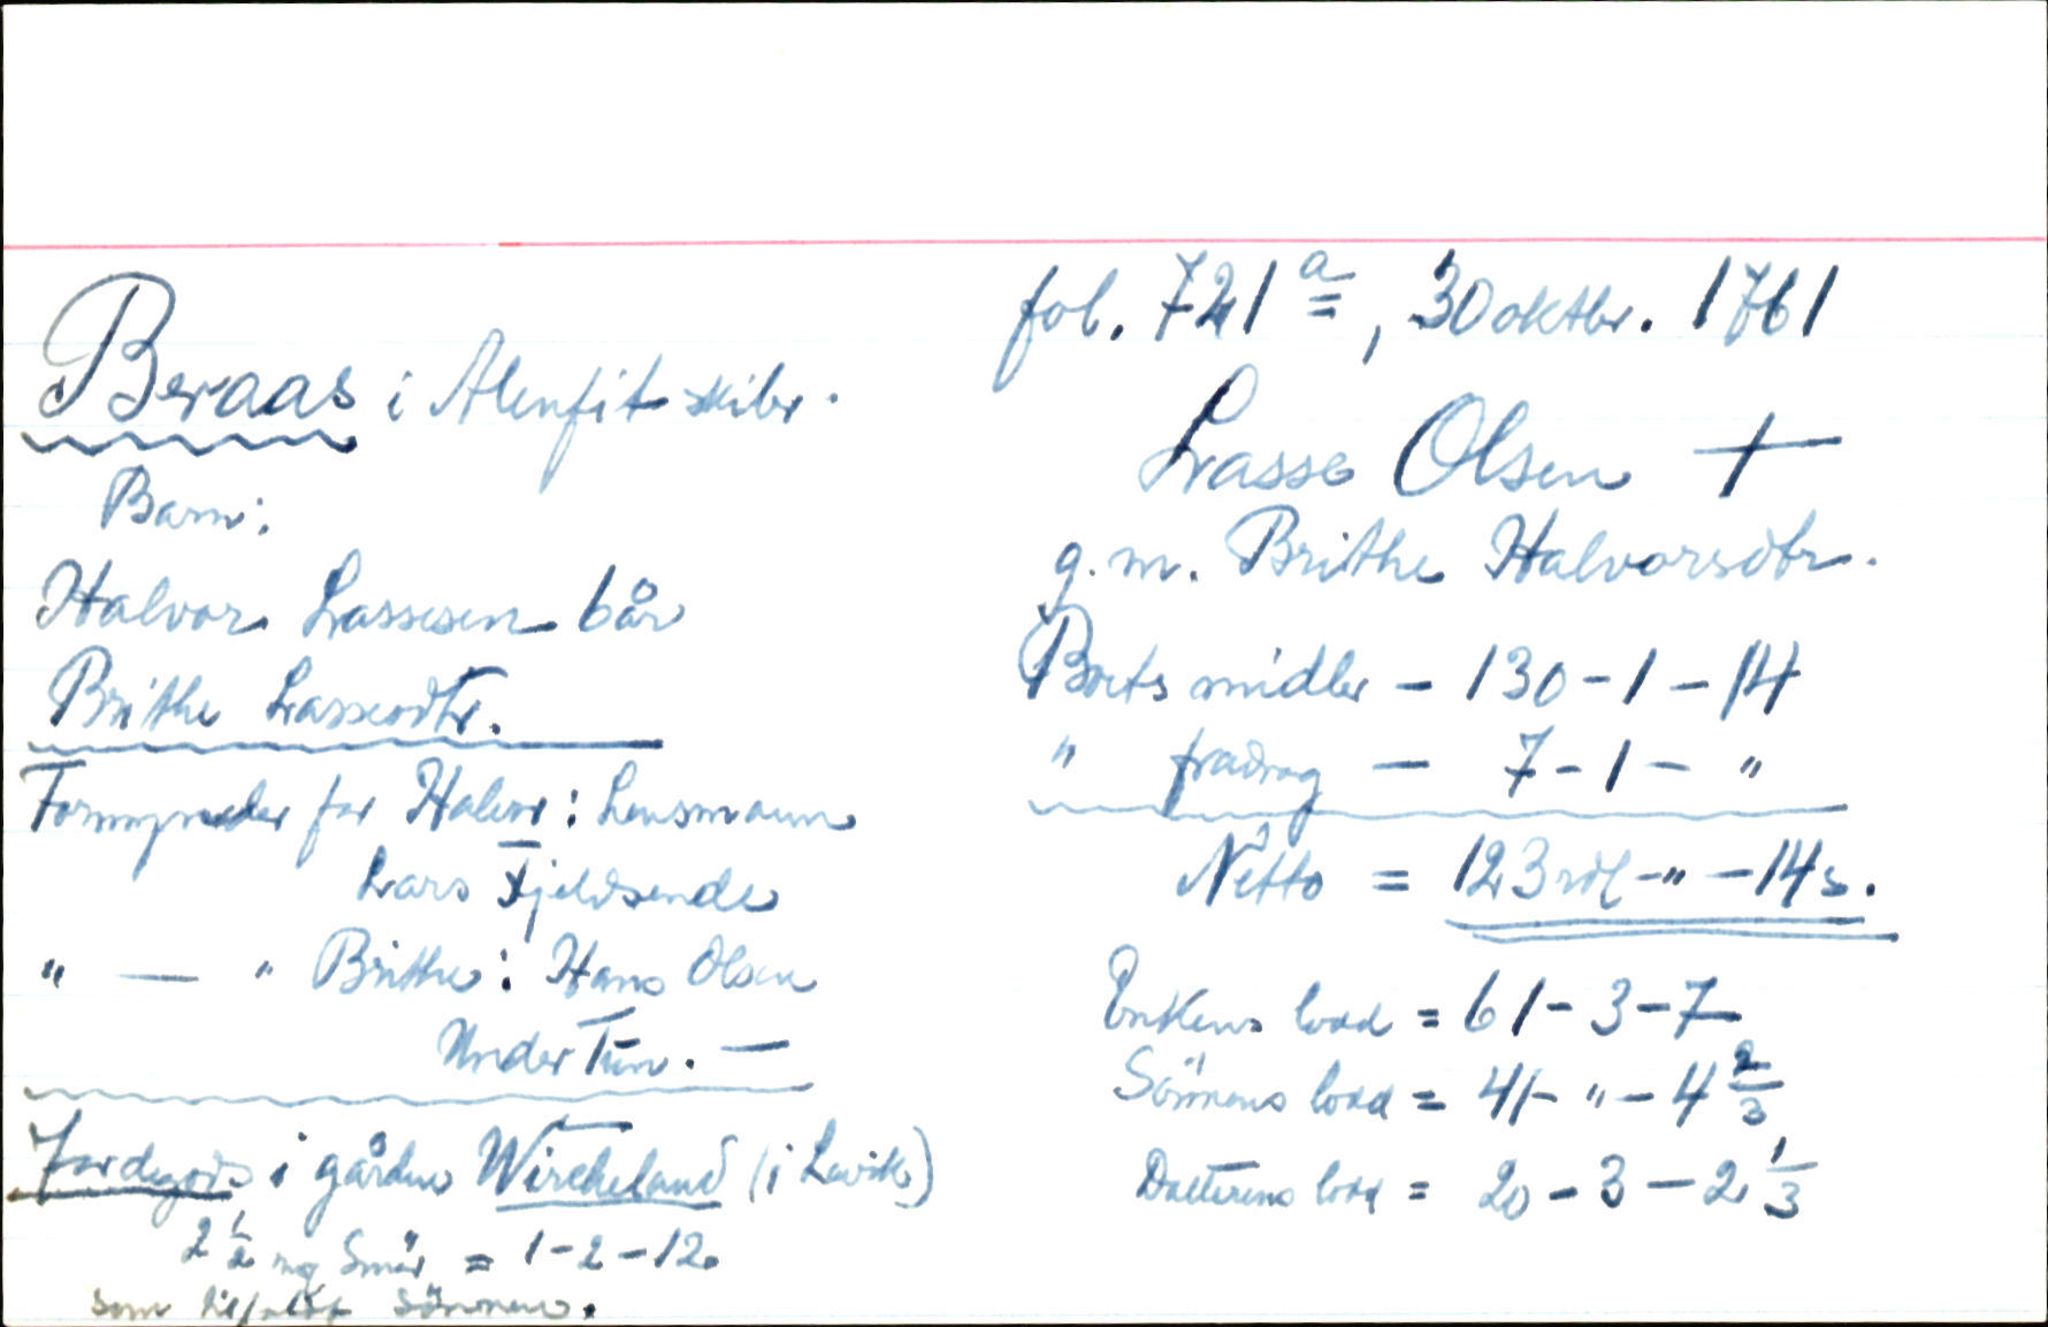 fol. 721 a, 30 oktbr. 1761
Beraas i Alenfit skibr.
Lasse Olsen +
Barn:
g. m. Brithe Halvorsdtr.
Halvor Lassesen 6 år
Brithe Lassesdtr.
Boets midler - 130 - 1 - 14
" fradrag - 7 - 1 - "
Netto = 123 rdl - " - 14 s.
Formynder for Halvor: Lensmann
Lars Tjeldsende
" — " Brithe: Hans Olsen
Under Tun. —
Enkens lodd = 61 - 3 - 7
Sönnens lodd = 41 - " - 4 2/3
Datterens lodd = 20 - 3 - 2 1/3
Jordegods i gården Wircheland (i Lavik)
2 1/2 mg Smör = 1 - 2 - 12.
som tilfalöt sönnen.